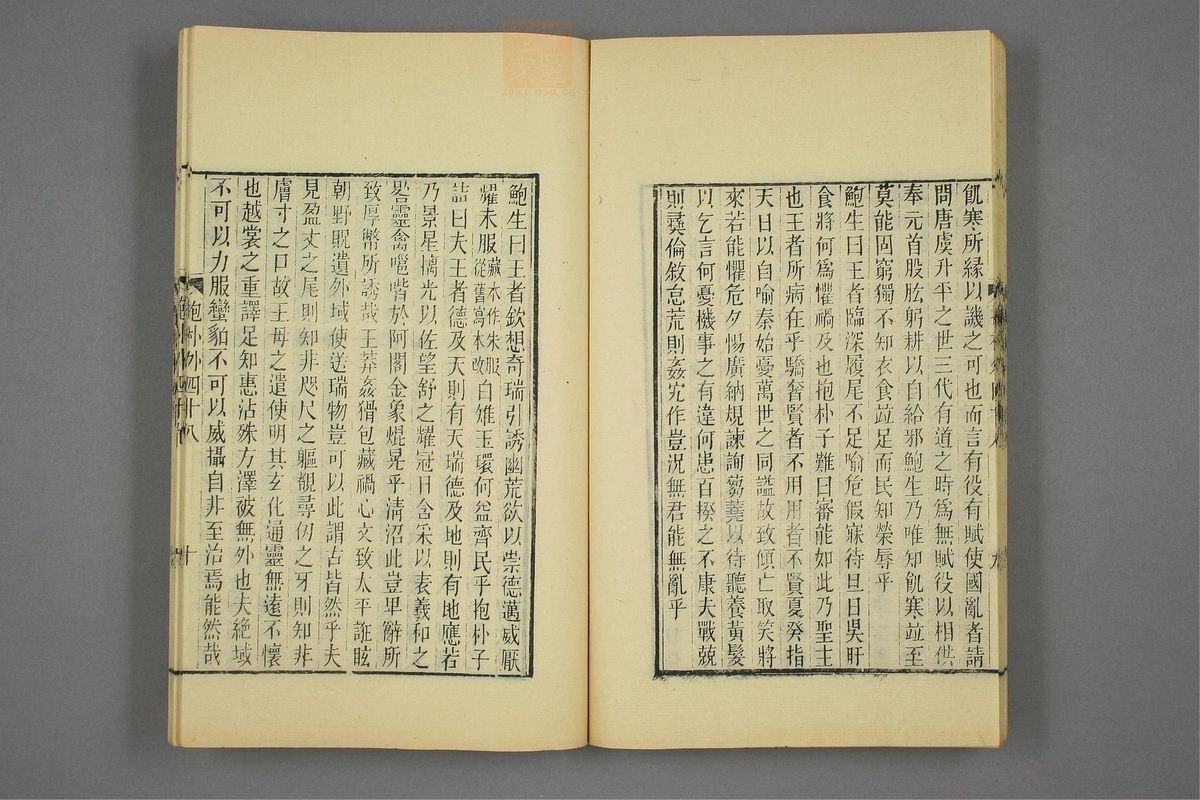 飢寒所緣以譏之可也而言有役有賦使國亂者請
問唐虞升平之世三代有道之時爲無賦役以相供
奉元首股肱躬耕以自給邪鮑生乃唯知飢寒竝至
莫能固窮獨不知衣食竝足而民知榮辱乎
鮑生曰王者臨深履尾不足喻危假寐待旦日昃旰
食將何爲懼禍及也抱朴子難曰審能如此乃聖主
也王者所病在乎驕奢賢者不用用者不賢夏癸指
天日以自喻秦始憂萬世之同謚故致傾亡取笑將
來若能懼危夕惕廣納規諫詢蒭蕘以待聽養黃髮
以乞言何憂機事之有違何患百揆之不康夫戰兢
則彝倫敘怠荒則姦宄作豈況無君能無亂乎
鮑生曰王者欽想奇瑞引誘幽荒欲以崇德邁威厭
耀未服藏本作朱服從舊寫本改白雉玉環何益齊民乎抱朴子
詰曰夫王者德及天則有天瑞德及地則有地應若
乃景星摛光以佐望舒之耀冠日含采以表羲和之
晷靈禽嗈喈於阿閣金象焜晃乎清沼此豈卑辭所
致厚幣所誘哉王莽姦猾包藏禍心文致太平誑眩
朝野貺遺外域使送瑞物豈可以此謂古皆然乎夫
見盈丈之尾則知非咫尺之軀覩尋仞之牙則知非
膚寸之口故王母之遣使明其玄化通靈無遠不懷
也越裳之重譯足知惠沾殊方澤被無外也夫絕域
不可以力服蠻貊不可以威攝自非至治焉能然哉
抱朴外四十八
十